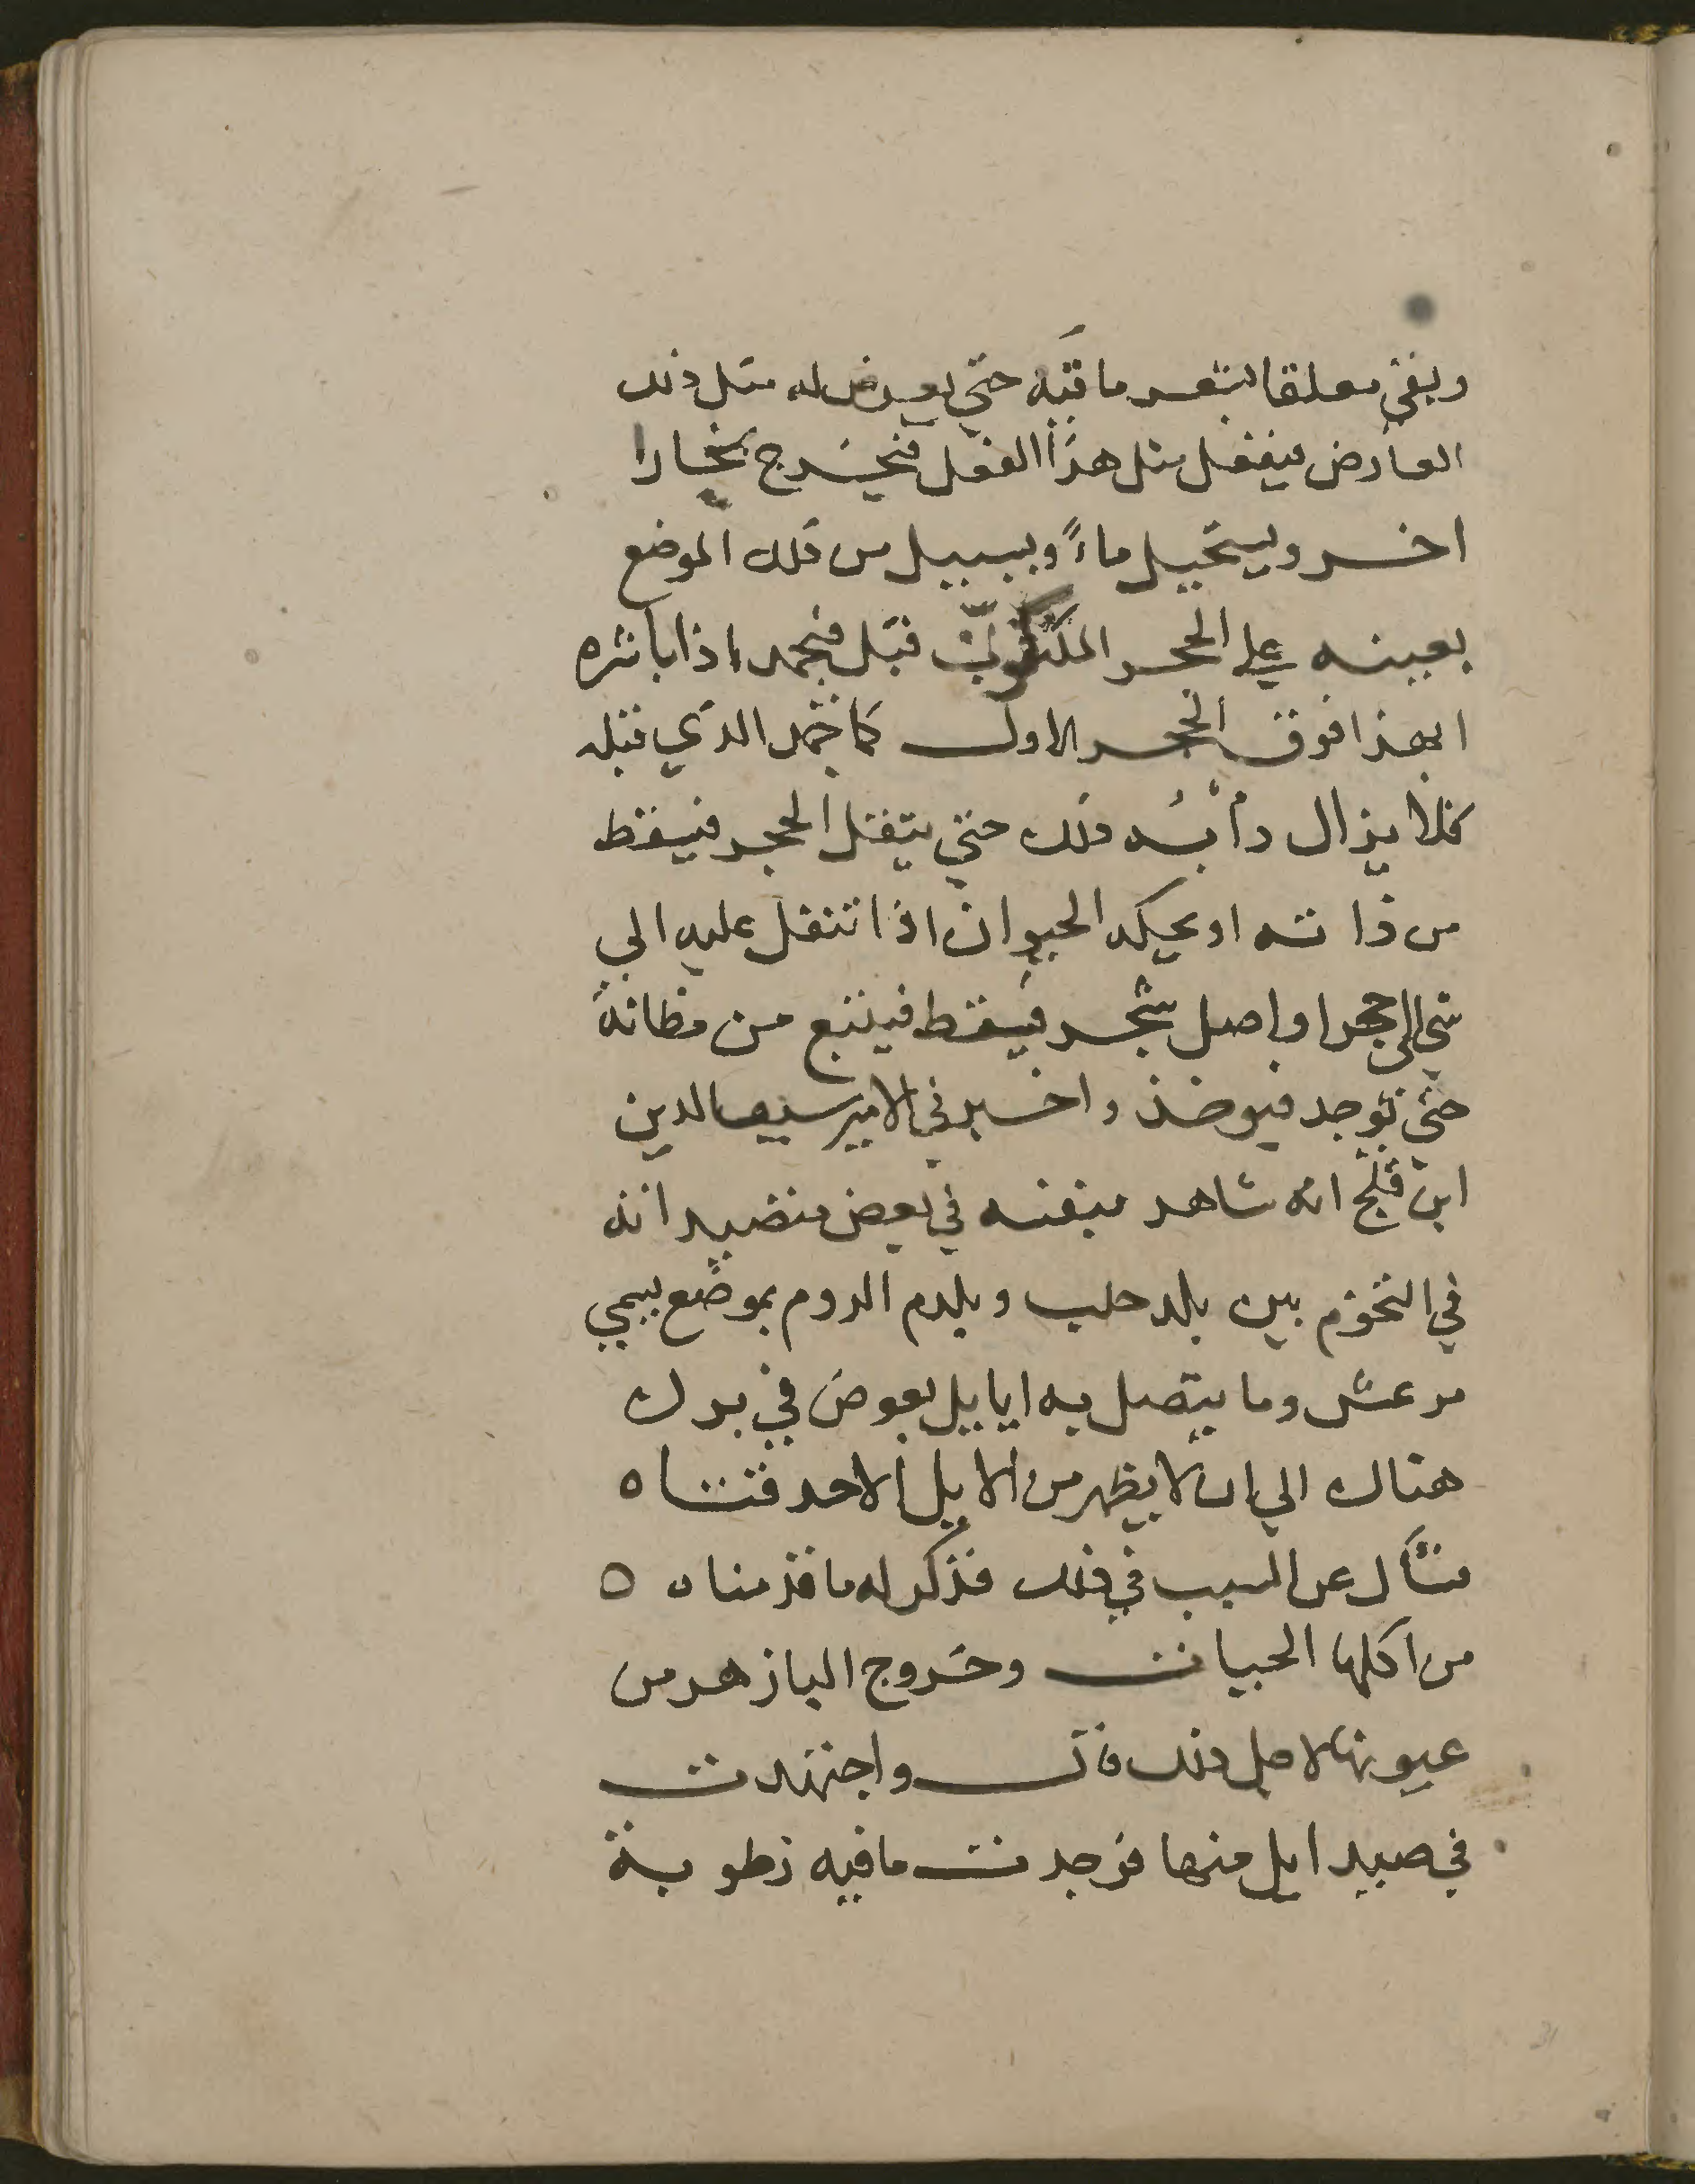 وبقي معلقا بشعر ماقيه حتي يعرض له مثل ذلك
العارض فيفعل مثل هذا الفعل فيخرج بخارا
اخر ويستحيل ماءً ويسيل من تلك الموضع
بعينه علي الحجر المتكون قبل فيجمد اذا باشره
الهوا فوق الحجر الاول كما جمد الذي قبله
فلا يزال دأبُه ذلك حتي يثقل الحجر فيسقط
من ذاته او يحكه الحيوان اذا ثقل عليه الي
شي الي حجر او اصل شجر فيسقط فيتبع من مظانه
حتي توجد فيوخذ واخبرني الامير سيف الدين
ابن قلج انه شاهد بنفسه في بعض متصيداته
في التخوم بين بلد حلب وبلدم الروم بموضع يسمي
مرعش وما يتصل به ايايل يغوص في برك
هناك الي ان لا يظهر من الايل الا حدقتاه
فسأل عن السبب في ذلك فذكر له ما قدمناه ه
من اكلها الحيات وخروج البازهر من
عيونها لاجل ذلك قال واجتهدت
في صيد ايل منها فوجدت ماقيه رطوبة
31